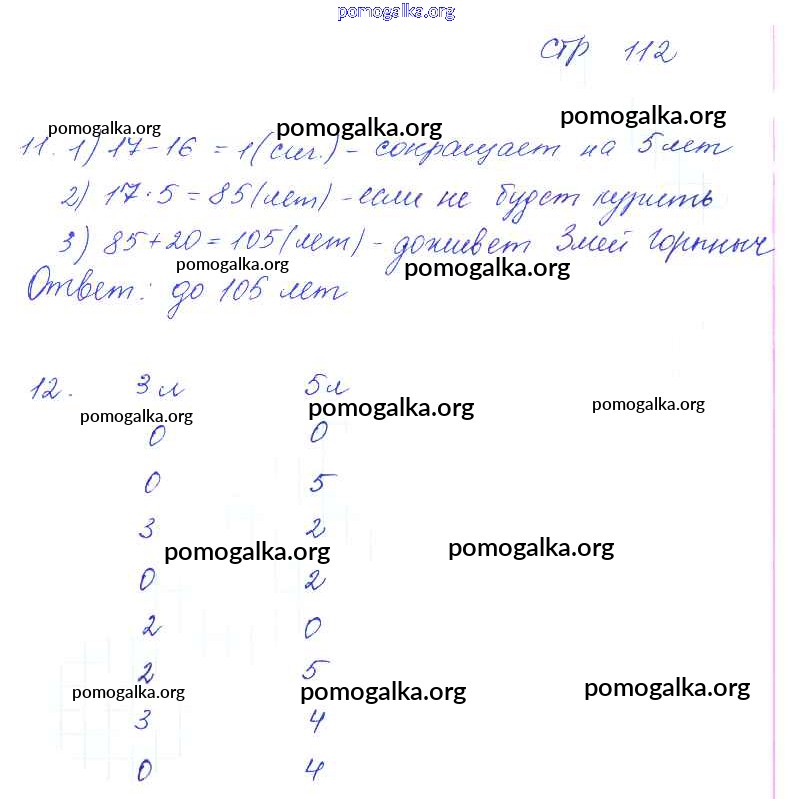 pomogalka.org
стр 112
pomogalka.org pomogalka.org pomogalka.org
11. 1) 17-16 = 1(сиг.) - сокращает на 5 лет
2) 17·5 = 85(лет) - если не будет курить
3) 85+20 = 105(лет) - доживет Змей Горыныч
pomogalka.org pomogalka.org
Ответ: до 105 лет
12. 3 л 5 л
pomogalka.org pomogalka.org pomogalka.org
0 0
0 5
3 2
pomogalka.org pomogalka.org
0 2
2 0
2 5
pomogalka.org pomogalka.org pomogalka.org
3 4
0 4